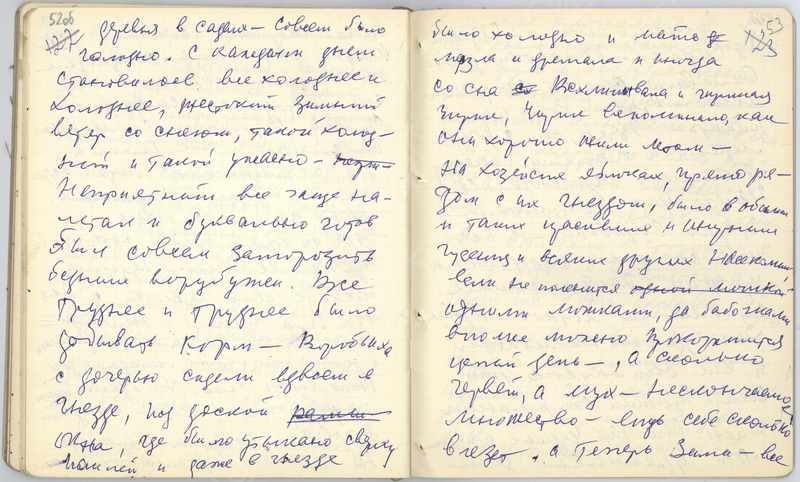 52об
127
деревья в саду — совсем было
голодно. С каждым днем
становилось все холоднее и
холоднее, жестокий зимний
ветер со снегом, такой холод-
ный и такой ужасно —
неприятный все чаще на-
летал и буквально готов
был совсем заморозить
бедных воробушек. Все
труднее и труднее было
добывать корм — Воробьиха
с дочерью сидели вдвоем в
гнезде, под доской
окна, где было утыкано сверху
паклей, и даже в гнезде
53
123
было холодно и мать
мерзла и дремала и иногда
со сна всхлипывала и чирикая
Чирик, Чирик вспоминала, как
они хорошо жили летом —
На хозяйских яблонях, прямо ря-
дом с их гнездом, было
и таких красивых и вкусных
гусениц и всяких других насекомых
если не поленится одной мошкой
одними мошками, да бабочками
вполне можно прокормиться
целый день —, а сколько
червей, а мух — несконечаемое
множество — ешь себе сколько
влезет. а теперь Зима — все